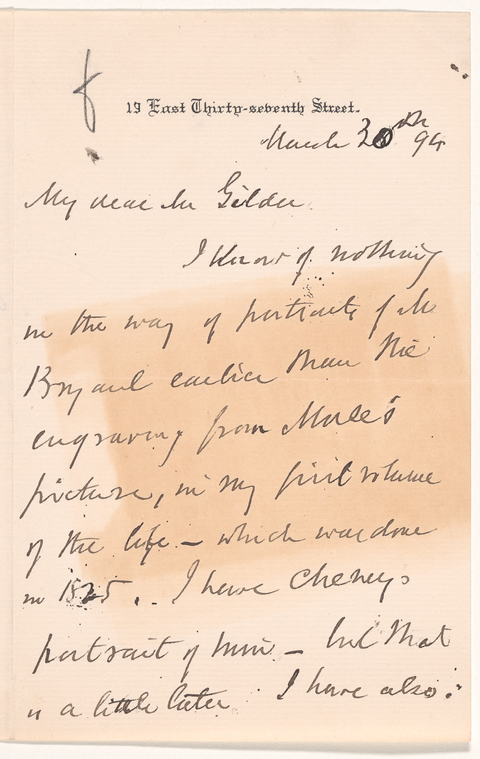 19 East Thirty-seventh Street.
March 30th 94
My dear Mr Gilder
I know of nothing
in the way of portraits of Mr
Bryant earlier than the
engraving from Morse's
picture, in my first volume
of the life – which was done
in 1825. I have Cheney's
portrait of him – but that
is a little later I have also